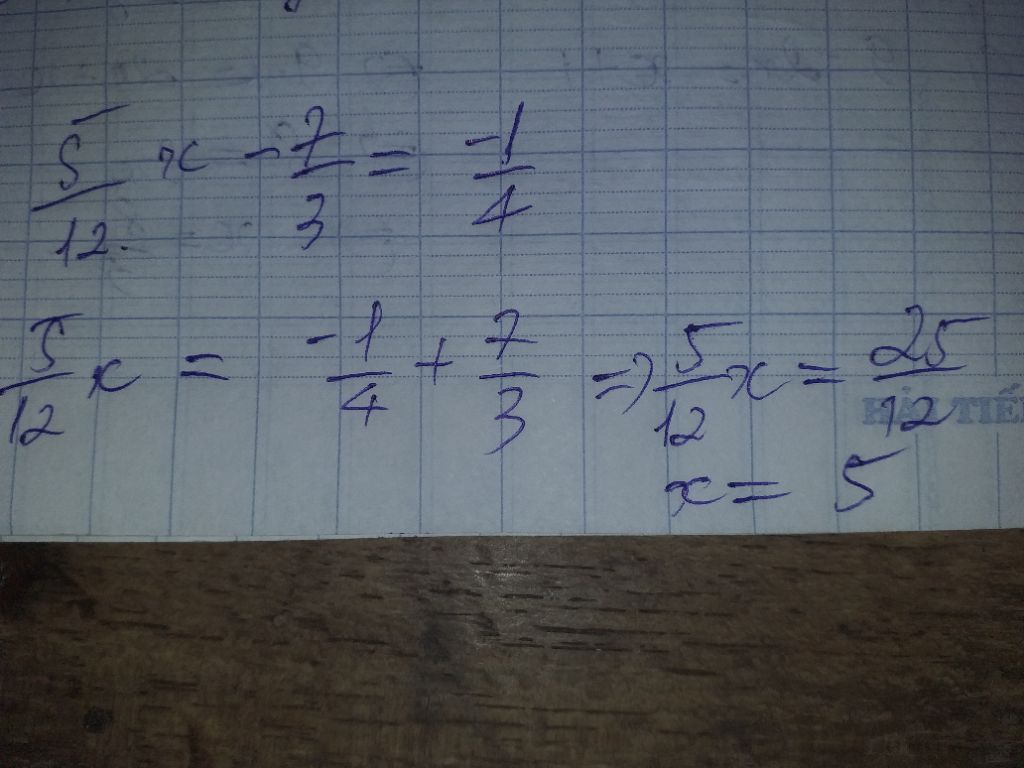 5/12 x - 7/3 = -1/4
5/12 x = -1/4 + 7/3 => 5/12 x = 25/12
HẢI TIẾ
x = 5